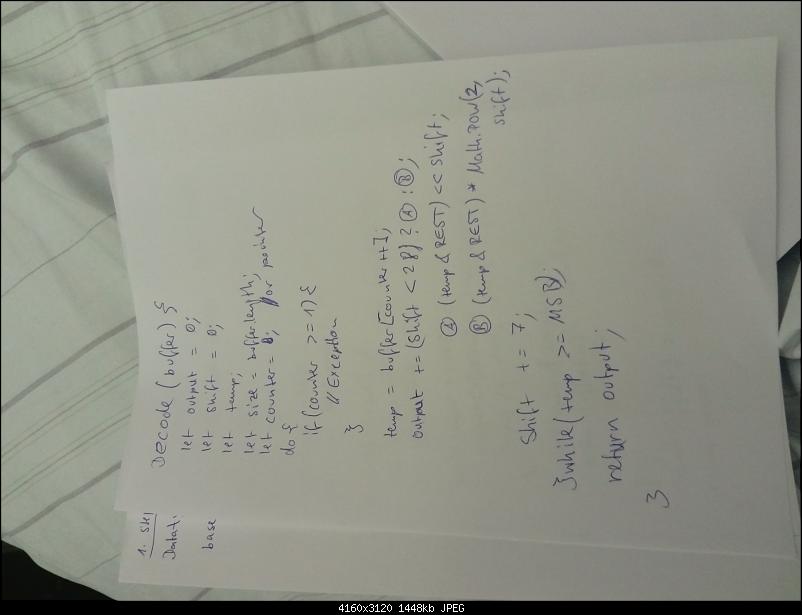 Decode (buffer) {
let output = 0;
let shift = 0;
let temp;
let size = buffer.length;
let counter = 0; // or pointer
do {
if (counter >= 1) {
// Exception
}
temp = buffer[counter++];
output += (shift < 28) ? Ⓐ : Ⓑ;
Ⓐ (temp & REST) << shift;
Ⓑ (temp & REST) * Math.pow(2,
shift);
shift += 7;
} while (temp >= MSB);
return output;
}
1.
base
4160x3120 1448kb JPEG